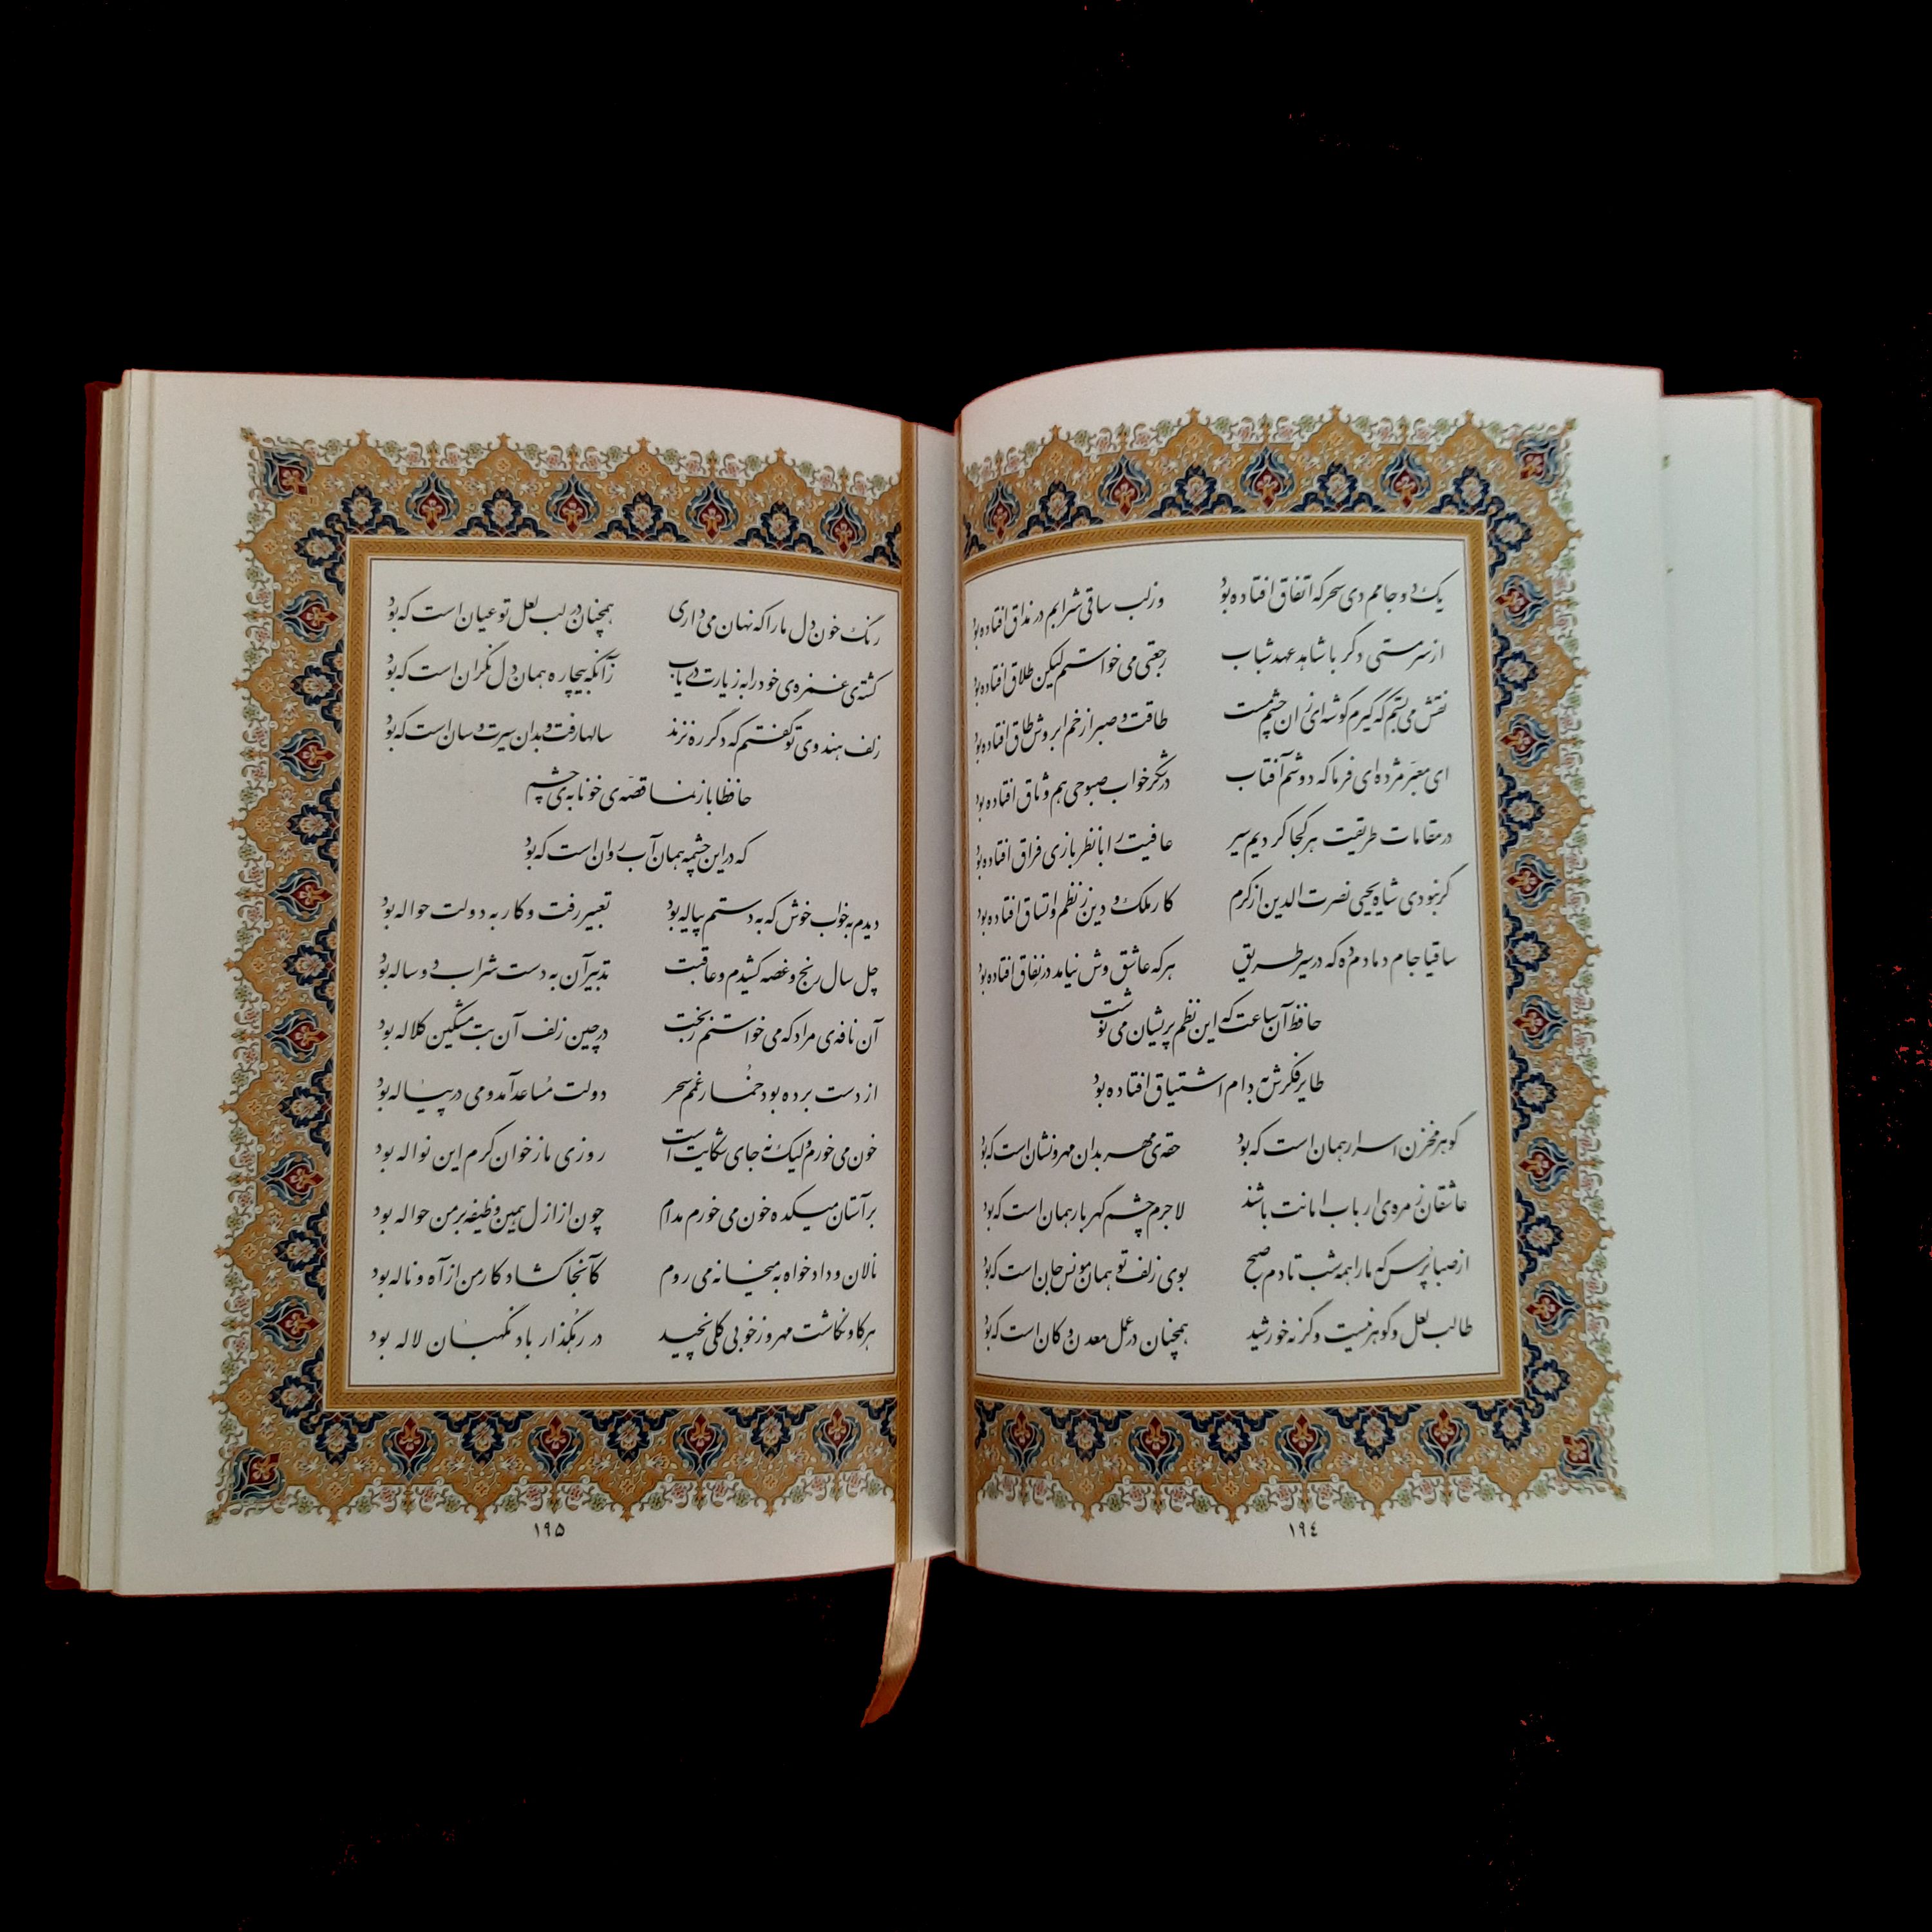 یک دو جامم دی سحرگه اتفاق افتاده بود وز لب ساقی شرابم در مذاق افتاده بود
از سر مستی دگر با شاهد عهد شباب رجعتی می خواستم لیکن طلاق افتاده بود
نقش می بستم که گیرم گوشه ای زان چشم مست طاقت و صبر از خم ابروش طاق افتاده بود
ای معبّر مژده ای فرما که دوشم آفتاب در شکر خواب صبوحی هم وثاق افتاده بود
در مقامات طریقت هر کجا کردیم سیر عافیت را با نظر بازی فراق افتاده بود
گر نبودی شاه یحیی نصرت الدین از کرم کار ملک و دین ز نظم و اتساق افتاده بود
ساقیا جام دمادم ده که در سیر طریق هر که عاشق وش نیامد در نفاق افتاده بود
حافظ آن ساعت که این نظم پریشان می نوشت
طایر فکرش به دام اشتیاق افتاده بود
گوهر مخزن اسرار همان است که بود حقه ی مهر بدان مهر و نشان است که بود
عاشقان زمره ی ارباب امانت باشند لاجرم چشم گهربار همان است که بود
از صبا پُرس که ما را همه شب تا دم صبح بوی زلف تو همان مونس جان است که بود
طالب لعل و گوهر نیست وگرنه خورشید همچنان در عمل معدن و کان است که بود
۱۹٤
رنگ خون دل ما را که نهان می داری همچنان در لب لعل تو عیان است که بود
کشته ی غمزه ی خود را به زیارت دریاب زآنکه بیچاره همان دل نگران است که بود
زلف هندوی تو گفتم که دگر ره نزند سالها رفت و بدان سیرت و سان است که بود
حافظا باز نما قصّه ی خونابه ی چشم
که در این چشمه همان آب روان است که بود
دیدم به خواب خوش که به دستم پیاله بود تعبیر رفت و کار به دولت حواله بود
چل سال رنج و غصه کشیدم و عاقبت تدبیر آن به دست شراب دو ساله بود
آن نافه ی مراد که می خواستم ز بخت در چین زلف آن بت مشگین کلاله بود
از دست برده بود خُمار غمم سحر دولت مُساعد آمد و می در پیاله بود
خون می خورم ولیک نه جای شکایت است روزی ما ز خوان کرم این نواله بود
بر آستان میکده خون می خورم مدام چون از ازل همین وظیفه بر من حواله بود
نالان و دادخواه به میخانه می روم کآنجا گشاد کار من از آه و ناله بود
هر کاو نکاشت مهر و ز خوبی گلی نچید در رهگذار باد نگهبان لاله بود
۱۹۵